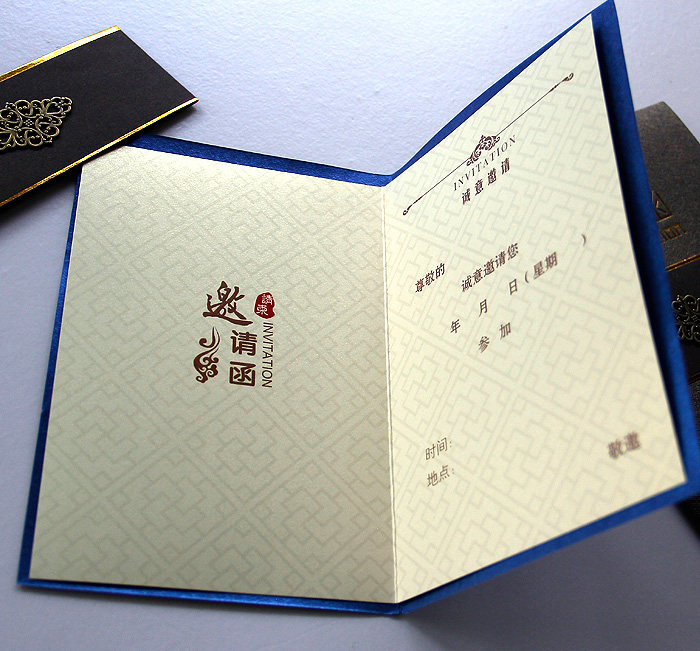 邀请函
請柬
INVITATION
INVITATION
诚意邀请
尊敬的
诚意邀请您
年 月 日(星期 )
参 加
时间:
地点:
敬邀